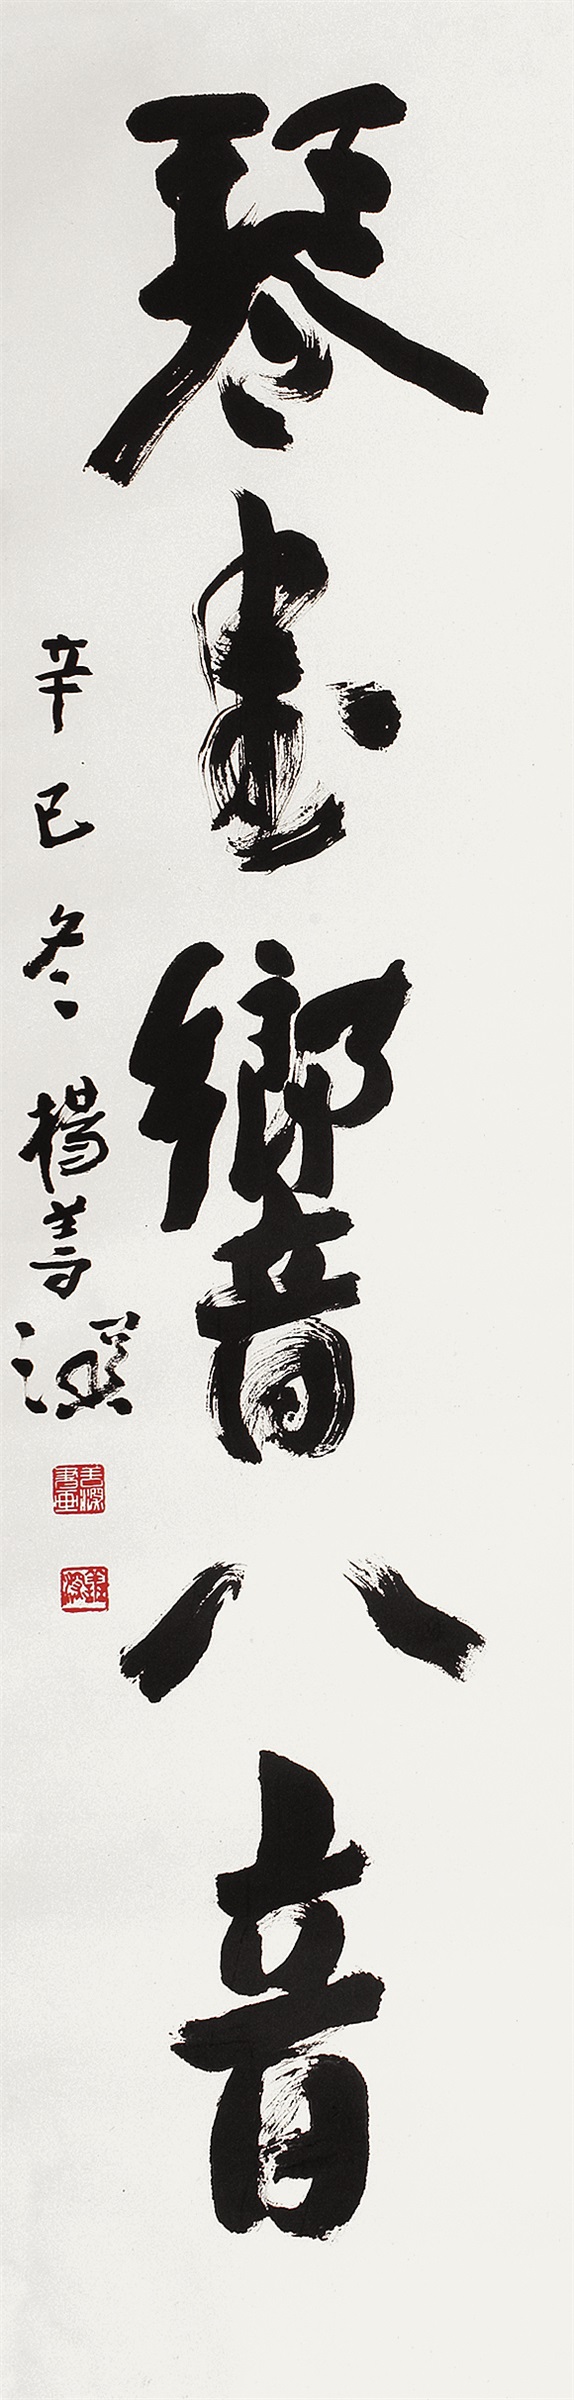 琴書響八音
辛巳冬楊善深
善深書畫